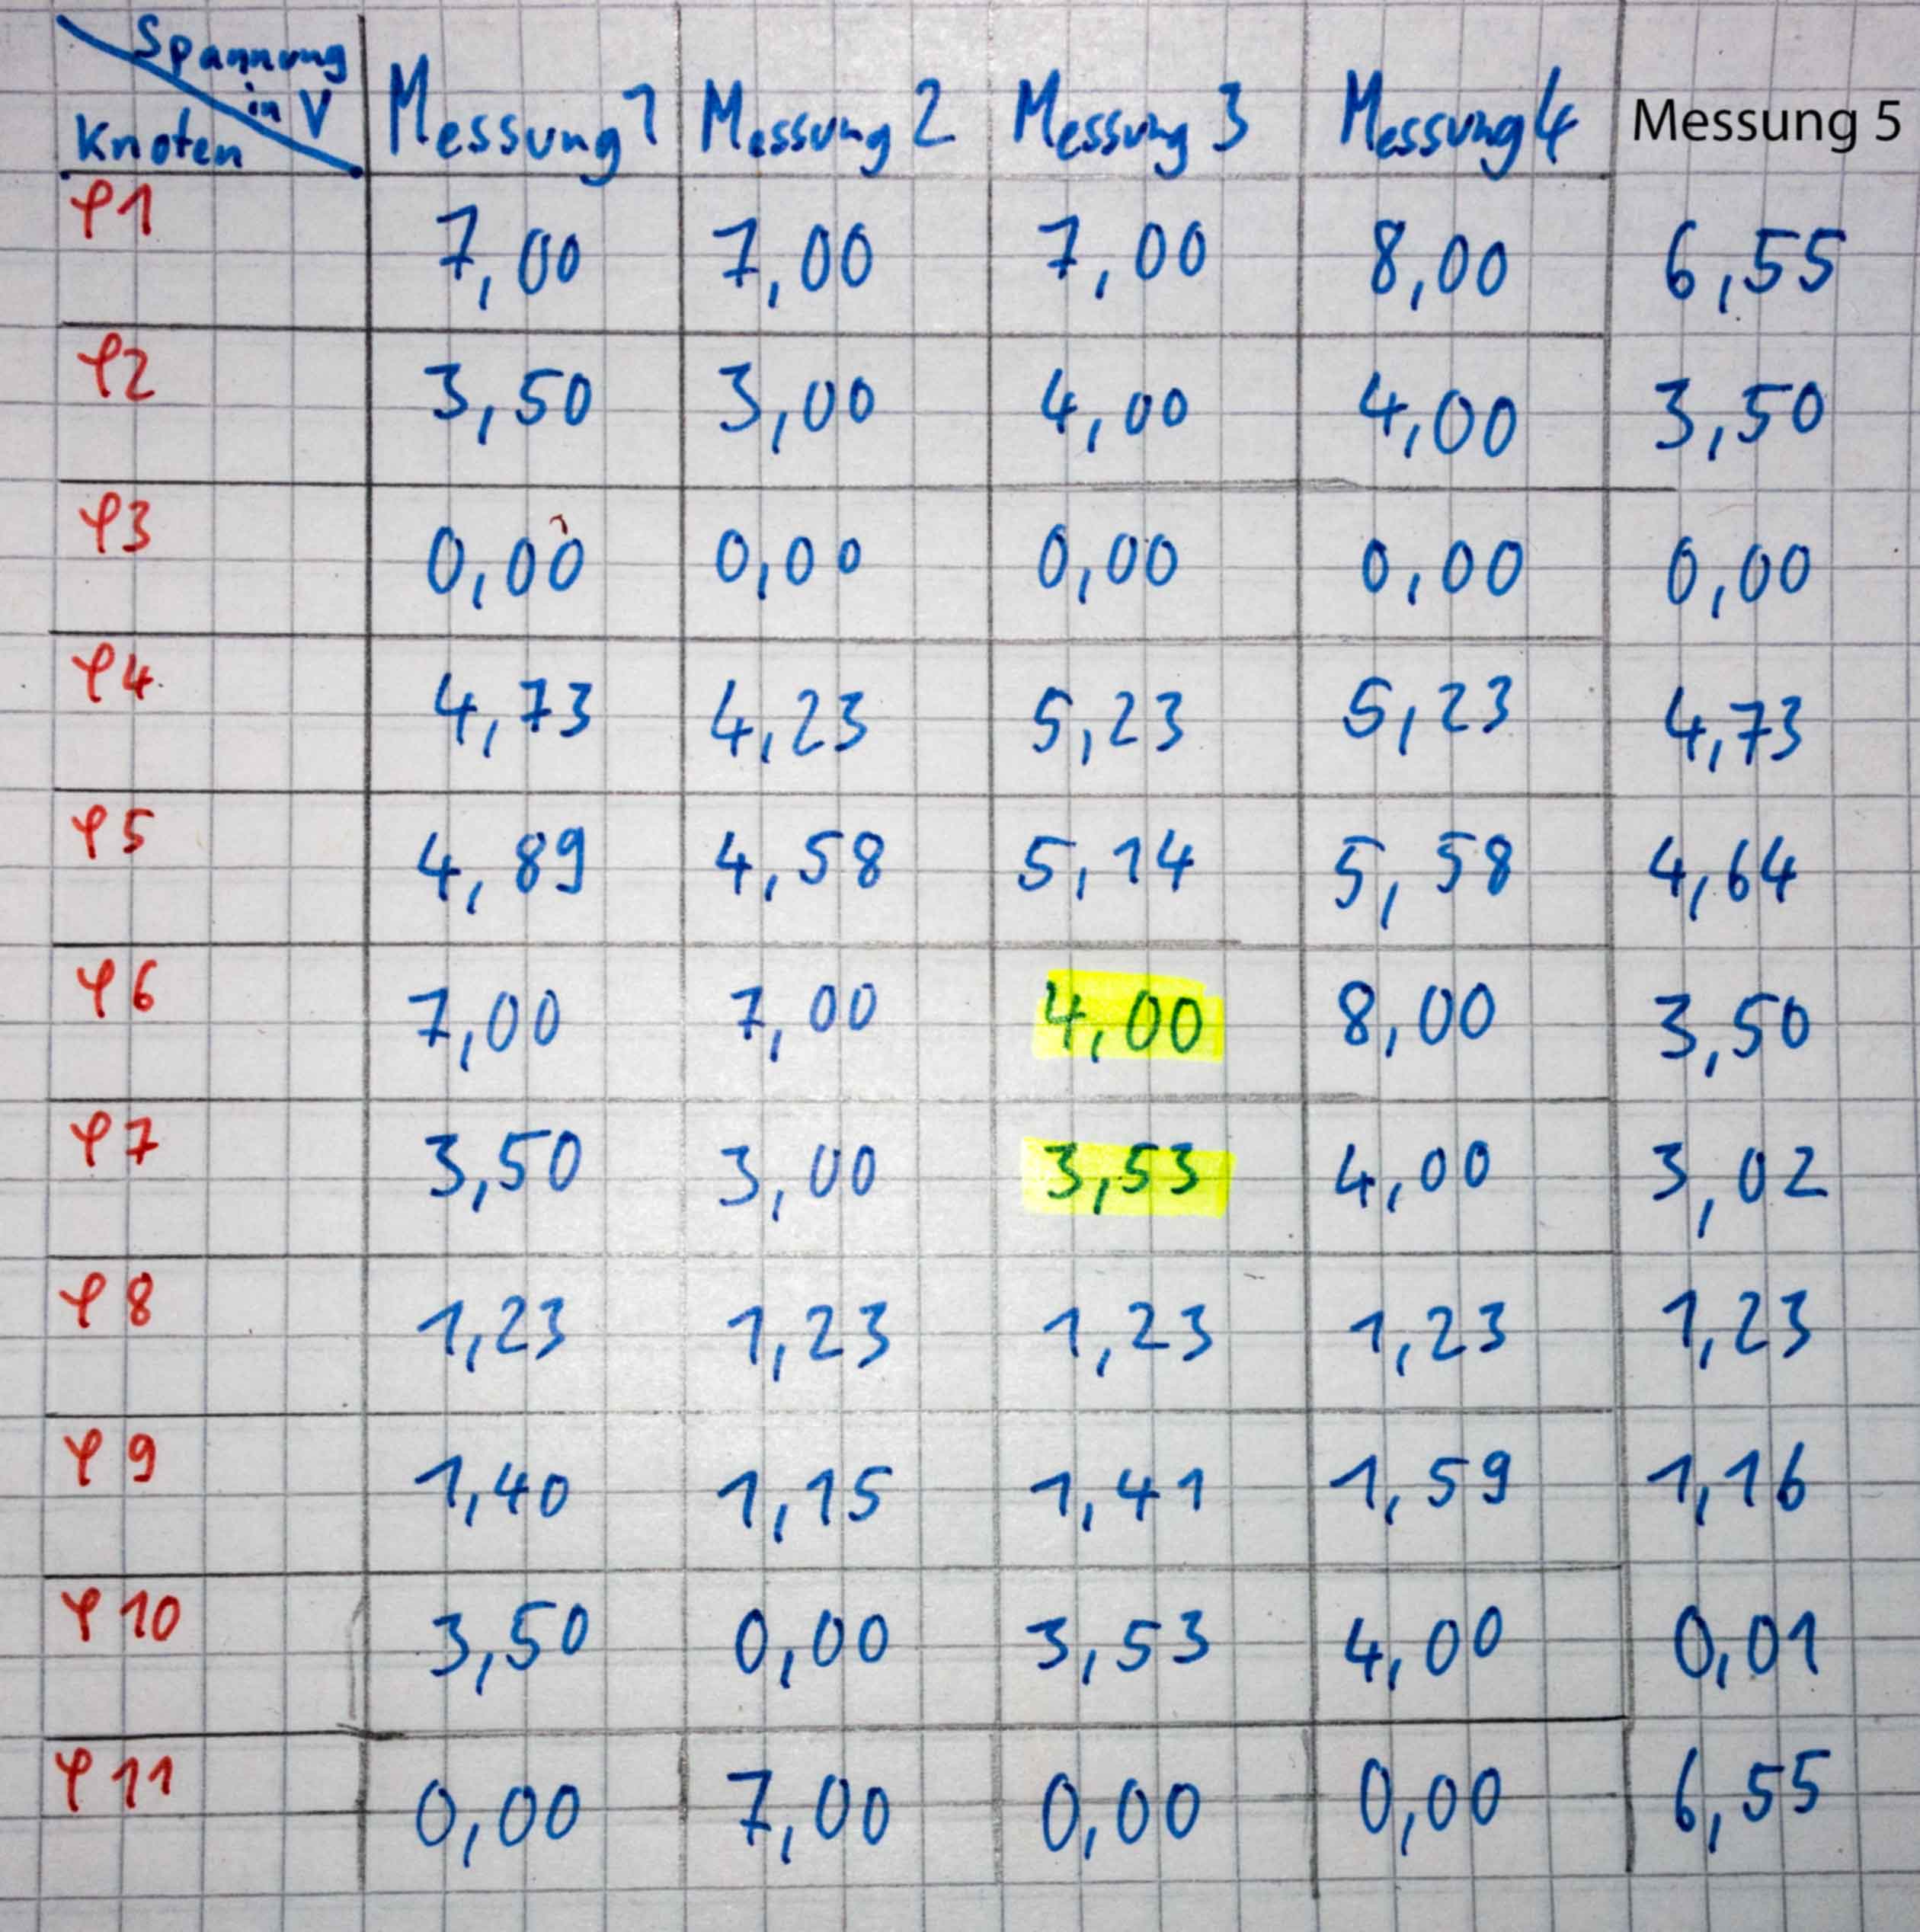 Spannung
in V
Knoten
Messung 1 Messung 2 Messung 3 Messung 4 Messung 5
φ1 7,00 7,00 7,00 8,00 6,55
φ2 3,50 3,00 4,00 4,00 3,50
φ3 0,00 0,00 0,00 0,00 0,00
φ4 4,73 4,23 5,23 5,23 4,73
φ5 4,89 4,58 5,14 5,58 4,64
φ6 7,00 7,00 4,00 8,00 3,50
φ7 3,50 3,00 3,53 4,00 3,02
φ8 1,23 1,23 1,23 1,23 1,23
φ9 1,40 1,15 1,41 1,59 1,16
φ10 3,50 0,00 3,53 4,00 0,01
φ11 0,00 7,00 0,00 0,00 6,55